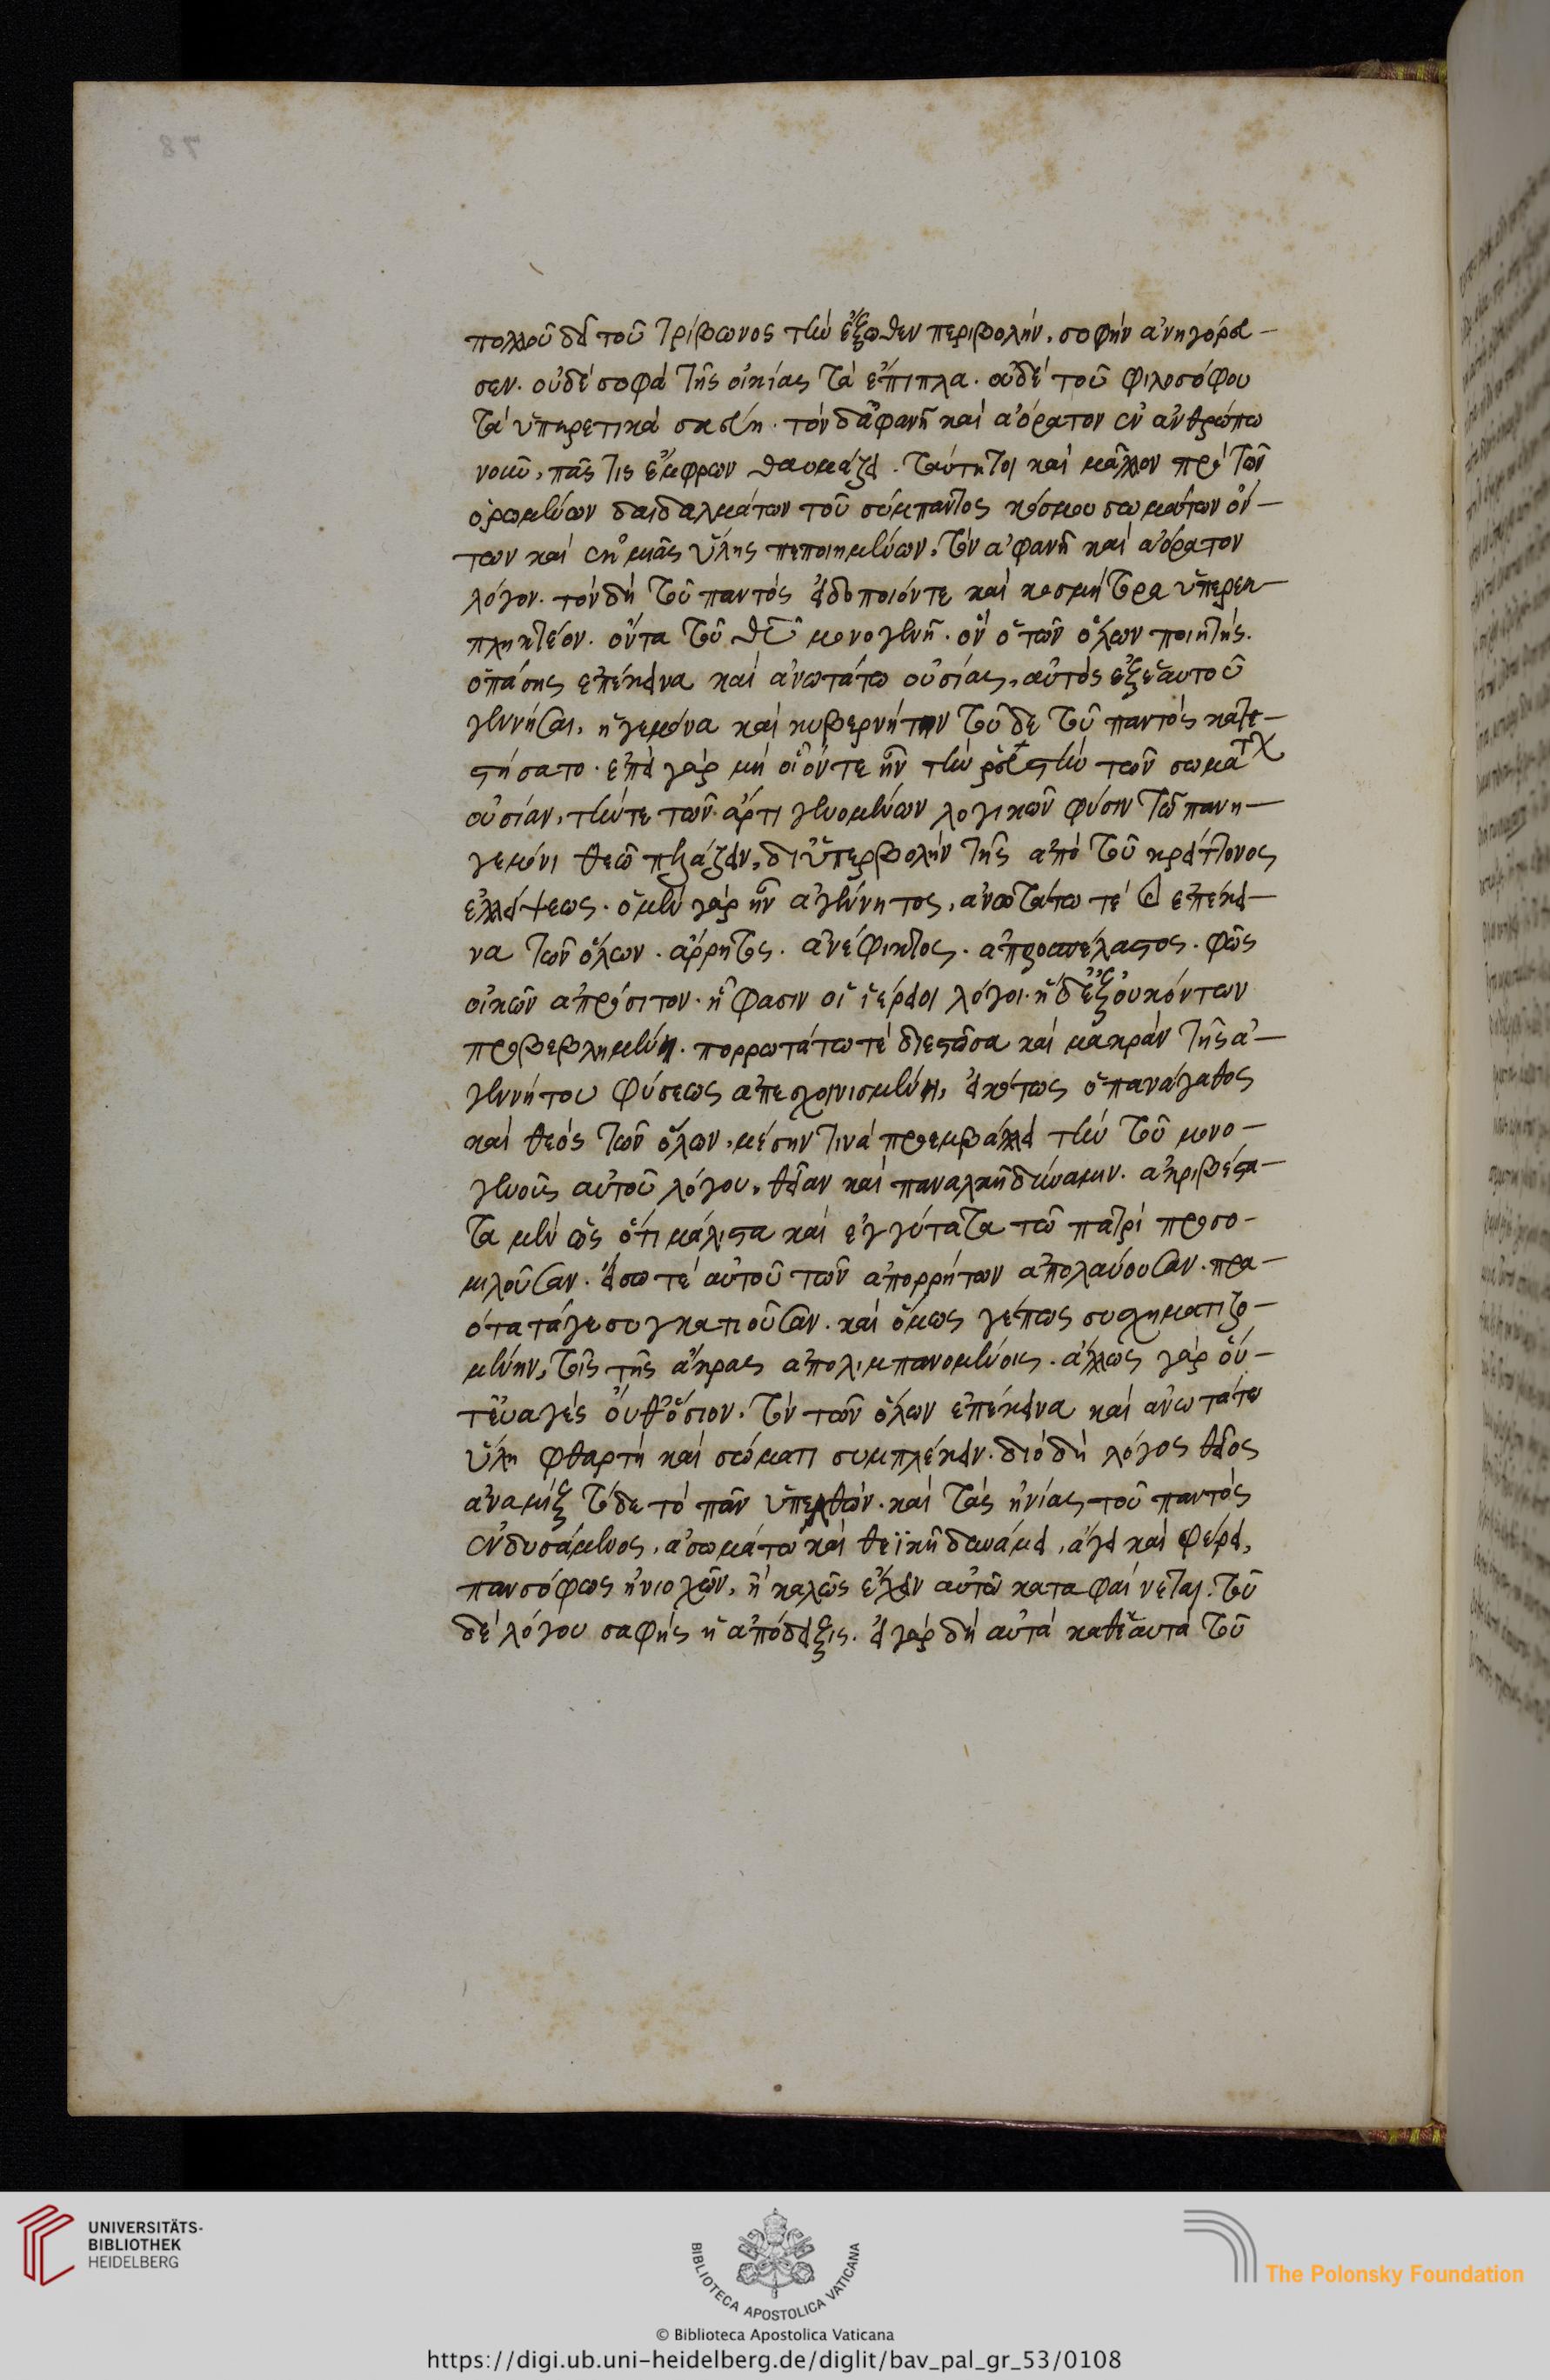 πολλοῦ δεῖ τοῦ τρίβωνος τὴν ἔξωθεν περιβολὴν, σοφὴν ἀνηγόρευ-
σεν. οὐδὲ σοφὰ τῆς οἰκίας τὰ ἔπιπλα. οὐδὲ τοῦ φιλοσόφου
τὰ ὑπηρετικὰ σκεύη. τὸν δ' ἀφανῆ καὶ ἀόρατον ἐν ἀνθρώπω
νοῦν, πᾶς τις ἔμφρων θαυμάζει. ταύτη τοι καὶ μᾶλλον πρὸ τῶν
ὁρωμένων δαιδαλμάτων τοῦ σύμπαντος κόσμου σωμάτων ὄν-
των καὶ ἐκ μιᾶς ὕλης πεποιημένων, τὸν ἀφανῆ καὶ ἀόρατον
λόγον. τὸν δὴ τοῦ παντὸς εἰδοποιόν τε καὶ κοσμήτορα ὑπερεκ-
πληκτέον. ὄντα τοῦ θυ μονογενῆ. ὃν ὁ τῶν ὅλων ποιητὴς.
ὁ πάσης ἐπέκεινα καὶ ἀνωτάτω οὐσίας, αὐτὸς ἐξ ἑαυτοῦ
γεννήσας, ἡγεμόνα καὶ κυβερνήτην τοῦδε τοῦ παντὸς κατε-
στήσατο. ἐπεὶ γὰρ μὴ οἷόν τε ἦν τὴν ῥευστὴν τῶν σωμάτων
οὐσίαν, τήν τε τῶν ἄρτι γενομένων λογικῶν φύσιν τῶ πανη-
γεμόνι θεῶ πελάζειν, δι' ὑπερβολὴν τῆς ἀπὸ τοῦ κρείττονος
ἐλλείψεως. ὁ μὲν γὰρ ἦν ἀγέννητος, ἀνωτάτω τὲ καὶ ἐπέκει-
να τῶν ὅλων. ἄρρητος. ἀνέφικτος. ἀπροσπέλαστος. φῶς
οἰκῶν ἀπρόσιτον. ἧ φασιν οἱ ἱεροὶ λόγοι. ἡ δ' ἐξ οὐκ ὄντων
προβεβλημένη. πορρωτάτω τὲ διεστῶσα καὶ μακρὰν τῆς ἀ-
γεννήτου φύσεως ἀπεσχοινισμένη, εἰκότως ὁ πανάγαθος
καὶ θεὸς τῶν ὅλων, μέσην τινὰ προεμβάλλει τὴν τοῦ μονο-
γενοῦς αὐτοῦ λόγου, θείαν καὶ παναλκῆ δύναμιν. ἀκριβέστα-
τα μὲν ὡς ὅτι μάλιστα καὶ ἐγγύτατα τῶ πατρὶ προσο-
μιλοῦσαν. εἴσω τὲ αὐτοῦ τῶν ἀπορρήτων ἀπολαύουσαν. πρα-
ότατά γε συγκατιοῦσαν. καὶ ὅμως γέ πως συσχηματιζο-
μένην, τοῖς τῆς ἄκρας ἀπολιμπανομένοις. ἄλλως γὰρ οὔ-
τ' εὐαγὲς οὔθ' ὅσιον, τὸν τῶν ὅλων ἐπέκεινα καὶ ἀνωτάτω
ὕλη φθαρτῆ καὶ σώματι συμπλέκειν. διὸ δὴ λόγος θεῖος
ἀναμὶξ τόδε τὸ πᾶν ὑπελθὼν. καὶ τὰς ἡνίας τοῦ παντὸς
ἐνδυσάμενος, ἀσωμάτω καὶ θεϊκῆ δυνάμει, ἄγει καὶ φέρει,
πανσόφως ἡνιοχῶν, ἧ καλῶς ἔχειν αὐτῶ καταφαίνεται. τοῦ
δὲ λόγου σαφὴς ἡ ἀπόδειξις. εἰ γὰρ δὴ αὐτὰ καθ' ἑαυτὰ τοῦ
UNIVERSITÄTS-
BIBLIOTHEK
HEIDELBERG
BIBLIOTECA APOSTOLICA VATICANA
The Polonsky Foundation
© Biblioteca Apostolica Vaticana
https://digi.ub.uni-heidelberg.de/diglit/bav_pal_gr_53/0108